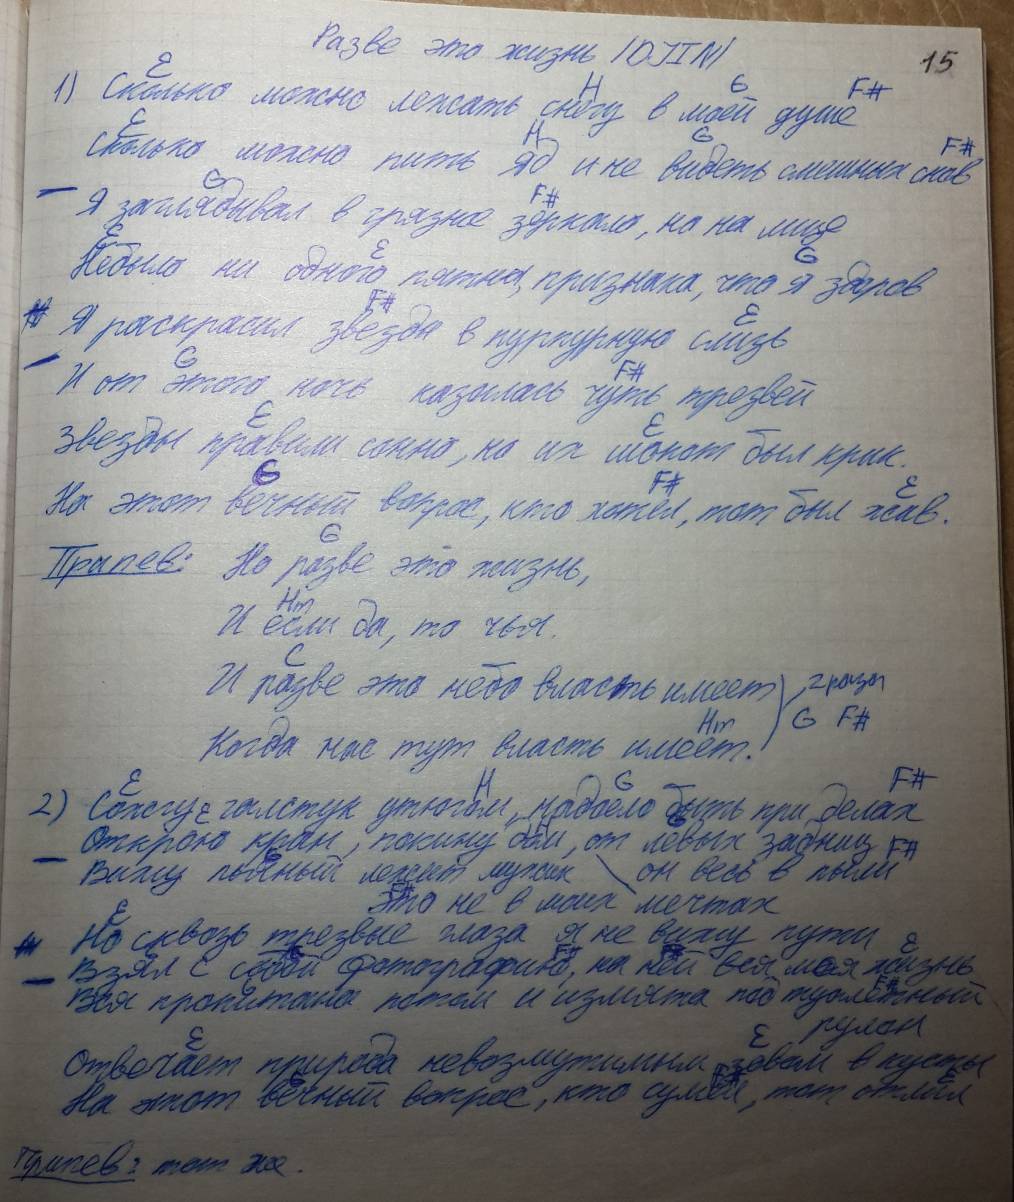 Разве это жизнь (DJIN) 15
E H G F#
1) Сколько можно лежать снегу в моей душе
E H G F#
Сколько можно пить яд и не видеть смешных снов
G F#
Я заглядывал в грязное зеркало, но на лице
E E G
Небыло ни одного пятна, признака, что я здоров
F# E
Я раскрасил звезда в пурпурную слизь
G F#
И от этого ночь казалась чуть трезвей
E E
Звезды правили сонно, но их шопот был крик.
G F# E
На этот вечный вопрос, кто хотел, тот был жив.
G
Припев: Но разве это жизнь,
Hm
И если да, то чья.
C
И разве это небо власть имеет 2 раза
Hm G F#
Когда нас тут власть имеет.
E H G F#
2) Сожгу галстук утюгом, надоело быть при делах
E H G
Открою кран, покину дом, от левых задниц F#
Вижу пьяный лежит мужик \ он весь в пыли
F#
Это не в моих мечтах
E
Но сквозь трезвые глаза я не вижу пути
G F# E
Взял с собой фотографию, на ней вся моя жизнь
G F#
Вся пропитана потом и измята под туалетный
рулон
E E
Отвечает природа невозмутимым зовом в кусты
G F# E
На этот вечный вопрос, кто сумел, тот отлил
Припев: тот же.